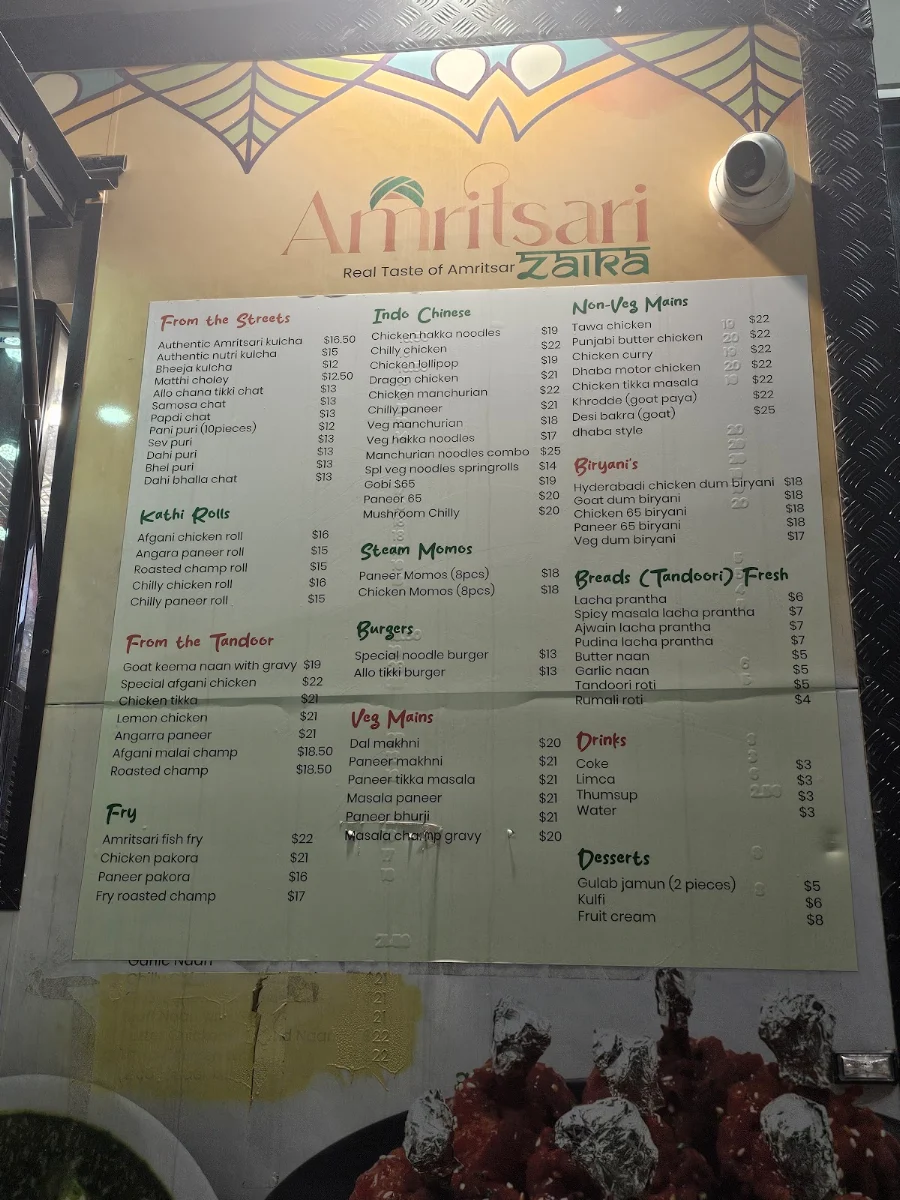 Amritsari
Real Taste of Amritsar Zaika
From the Streets
Authentic Amritsari kulcha $16.50
Authentic nutri kulcha $15
Bheeja kulcha $12
Matthi choley $12.50
Allo chana tikki chat $13
Samosa chat $13
Papdi chat $13
Pani puri (10pieces) $12
Sev puri $13
Dahi puri $13
Bhel puri $13
Dahi bhalla chat $13
Kathi Rolls
Afgani chicken roll $16
Angara paneer roll $15
Roasted champ roll $15
Chilly chicken roll $16
Chilly paneer roll $15
From the Tandoor
Goat keema naan with gravy $19
Special afgani chicken $22
Chicken tikka $21
Lemon chicken $21
Angarra paneer $21
Afgani malai champ $18.50
Roasted champ $18.50
Fry
Amritsari fish fry $22
Chicken pakora $21
Paneer pakora $16
Fry roasted champ $17
Indo Chinese
Chicken hakka noodles $19
Chilly chicken $22
Chicken lollipop $19
Dragon chicken $21
Chicken manchurian $22
Chilly paneer $21
Veg manchurian $18
Veg hakka noodles $17
Manchurian noodles combo $25
Spl veg noodles springrolls $14
Gobi S65 $19
Paneer 65 $20
Mushroom Chilly $20
Steam Momos
Paneer Momos (8pcs) $18
Chicken Momos (8pcs) $18
Burgers
Special noodle burger $13
Allo tikki burger $13
Veg Mains
Dal makhni $20
Paneer makhni $21
Paneer tikka masala $21
Masala paneer $21
Paneer bhurji $21
Masala champ gravy $20
Non-Veg Mains
Tawa chicken $22
Punjabi butter chicken $22
Chicken curry $22
Dhaba motor chicken $22
Chicken tikka masala $22
Khrodde (goat paya) $22
Desi bakra (goat) $25
dhaba style
Biryani's
Hyderabadi chicken dum biryani $18
Goat dum biryani $18
Chicken 65 biryani $18
Paneer 65 biryani $18
Veg dum biryani $17
Breads (Tandoori) Fresh
Lacha prantha $6
Spicy masala lacha prantha $7
Ajwain lacha prantha $7
Pudina lacha prantha $7
Butter naan $5
Garlic naan $5
Tandoori roti $5
Rumali roti $4
Drinks
Coke $3
Limca $3
Thumsup $3
Water $3
Desserts
Gulab jamun (2 pieces) $5
Kulfi $6
Fruit cream $8
Garlic Naan
21
21
21
22
22